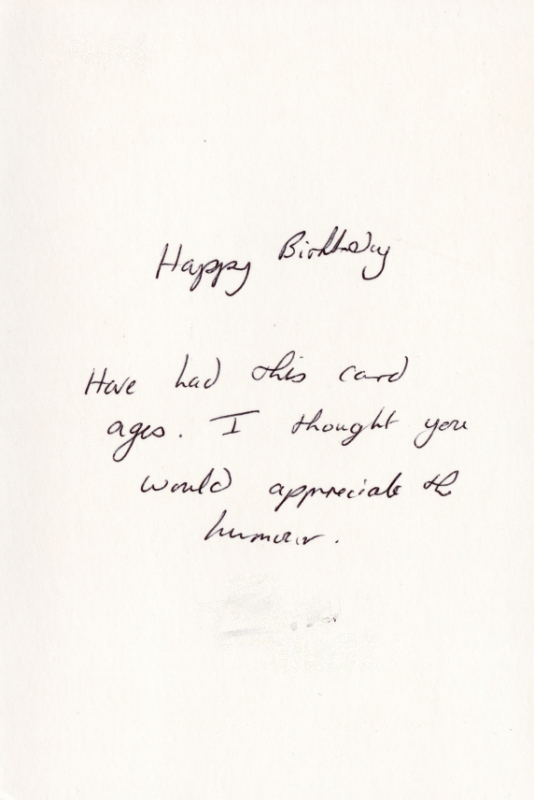 Happy Birthday
Have had this card
ages. I thought you
would appreciate the
humour.